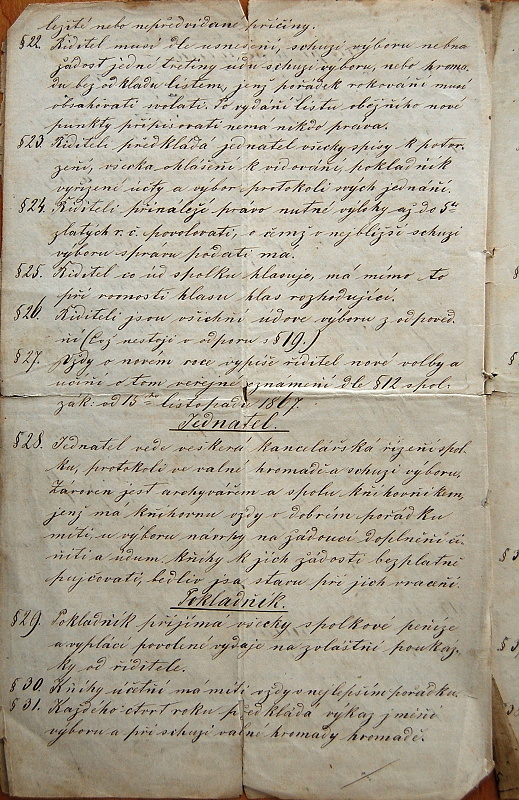 ležité nebo nepředvídané příčiny.
§22. Řiditel musí dle usnešení, schuzí výboru nebna
žádost jedné třetiny údu schuzi výboru, nebo hroma-
du bez odkladu listem, jenž pořádek rokování musí
obsahovati svolati. Po vydání listu oběžního nové
punkty připisovati nemá nikdo práva.
§23. Řiditeli předkládá jednatel všechy spisy k potvr-
zení, všecka ohlášení k vidování, pokladník
vyřízené účty a vybor protokoli svých jednání.
§24. Řiditeli přináleží právo nutné výlohy až do 5ti
zlatých r. č. povolovati, o čemž v nejbližší schuzi
výboru spravu podati má.
§25. Řiditel co úd spolku hlasuje, má mimo to
při rovnosti hlasu hlas rozhodující.
§26. Řiditeli jsou všichni údove výboru z odpověd-
ni (Což nestojí v odporu s §19.)
§27. Vždy o novém roce vypíše řiditel nové volby a
učiní o tom veřejné oznamení dle §12 spol-
zák: od 15 ho listopadu 1867.
Jednatel.
§28. Jednatel vede veškerá kancelářská řízení spol-
ku, protokoli ve valné hromadě a schuzi výboru,
Zároveň jest archyvářem a spolu knihovníkem,
jenž má knihovnu vždy v dobrém pořádku
míti, u výboru návrhy na žádoucí doplnění či-
niti a údum knihy k jich žádosti bezplatně
pujčovati, bedliv jsa stavu při jich vracení.
Pokladník.
§29. Pokladník přijímá všecky spolkové peníze
a vyplácí povolené vydaje na zvláštní poukáz-
ky od řiditele.
§30. Knihy účetní má míti vždy v nejlepším pořádku.
§31. Každého čtvrt roku předkládá výkaz jmění
výboru a při schuzi valné hromady hromadě.